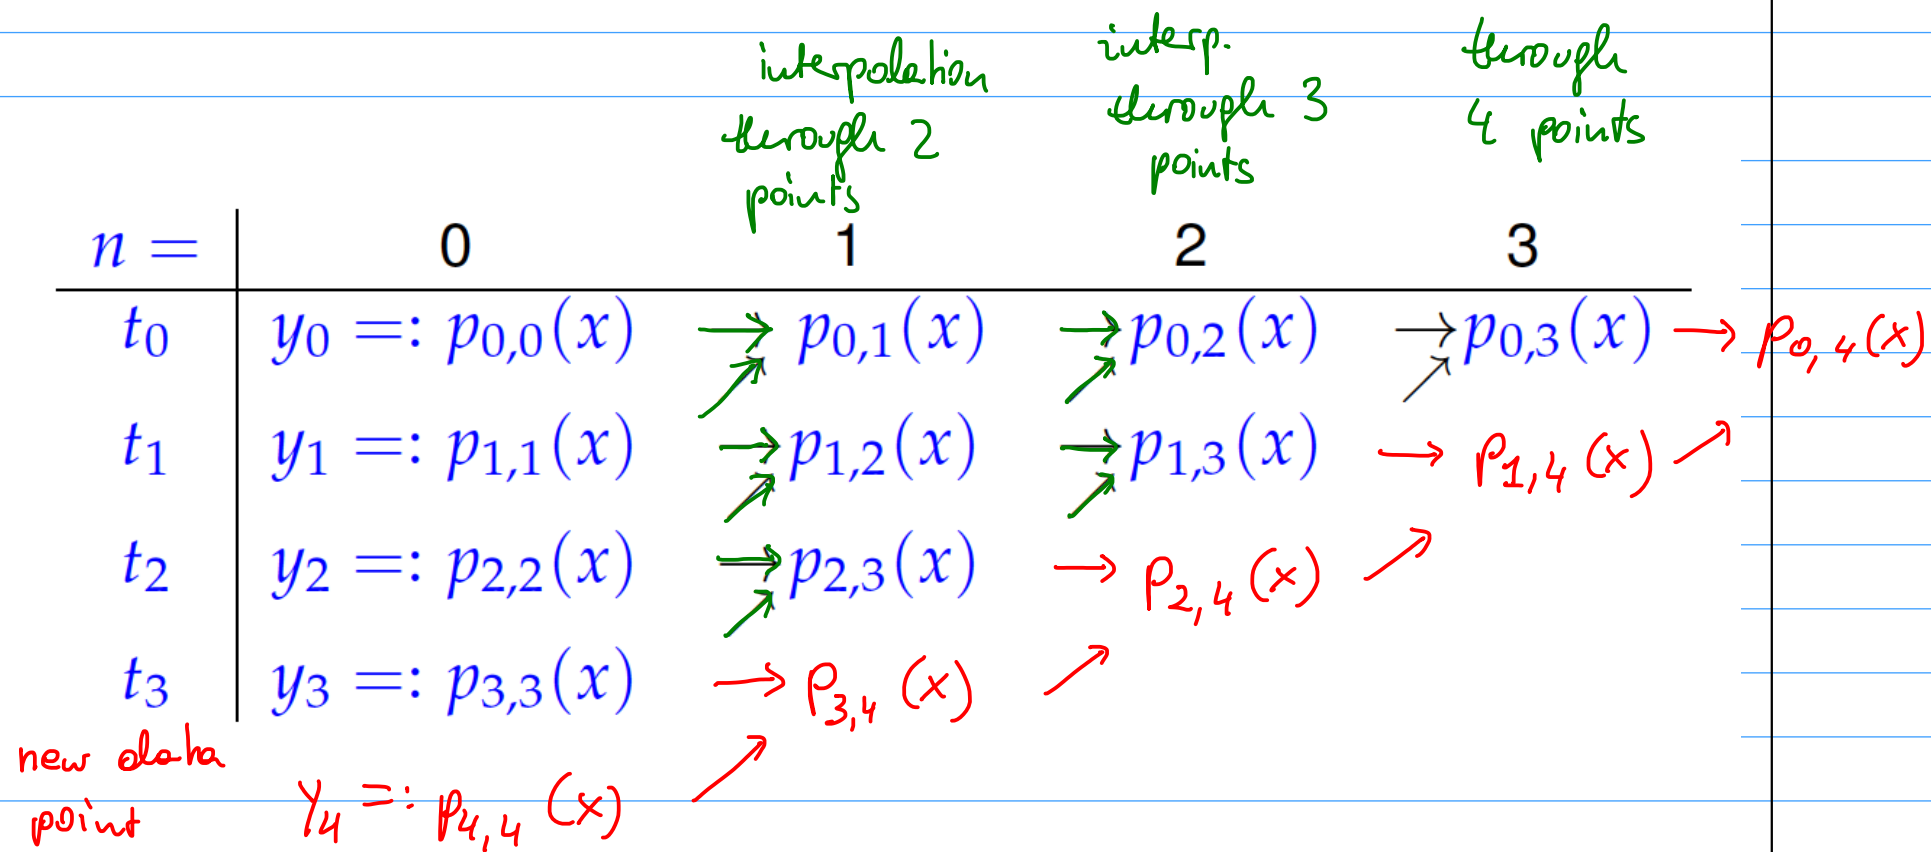 interpolation through 2 points
interp. through 3 points
through 4 points
n = 0 1 2 3
t₀ y₀ =: p₀,₀(x) → p₀,₁(x) → p₀,₂(x) → p₀,₃(x) → p₀,₄(x)
t₁ y₁ =: p₁,₁(x) → p₁,₂(x) → p₁,₃(x) → p₁,₄(x)
t₂ y₂ =: p₂,₂(x) → p₂,₃(x) → p₂,₄(x)
t₃ y₃ =: p₃,₃(x) → p₃,₄(x)
new data point y₄ =: p₄,₄(x)